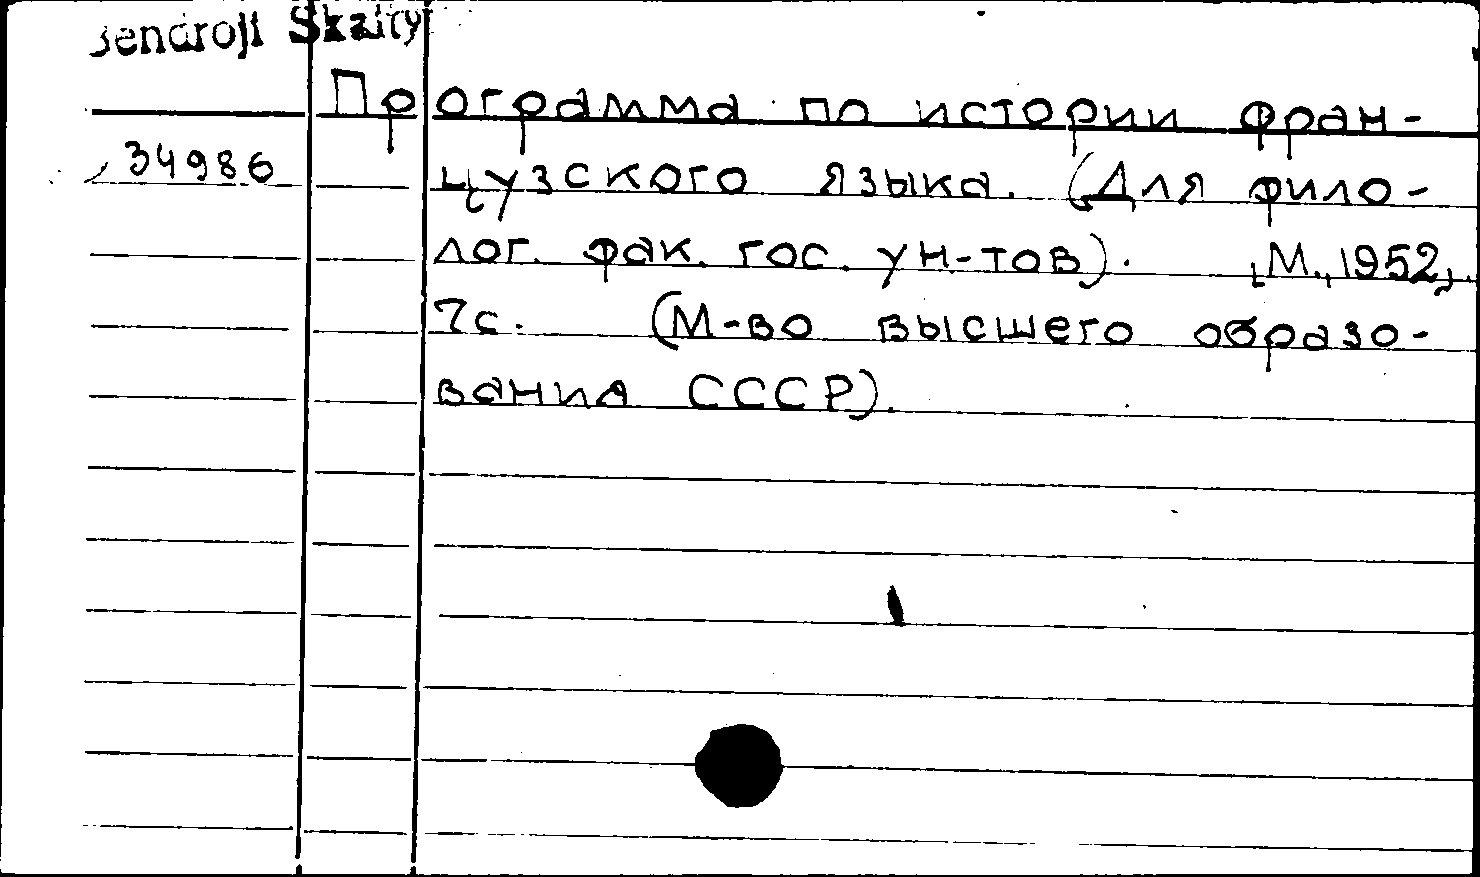 Bendroji Skaity
Программа по истории фран-
34986 цузского языка. (Для фило-
лог. фак. гос. ун-тов). [М., 1952].
7с. (М-во высшего образо-
вания СССР).